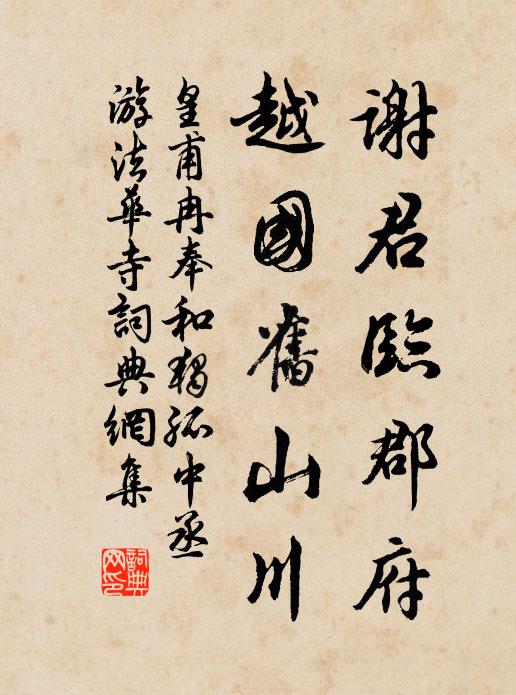 謝君臨郡府
越國舊山川
皇甫冉奉和獨孤中丞
游法華寺詞典網集
詞典網印